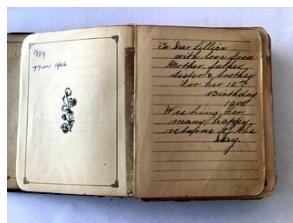 To Dear Lillian
with love from
Mother, father,
sister & brother
For her 12th
Birthday
Wishing her
many happy
returns of the
Day.